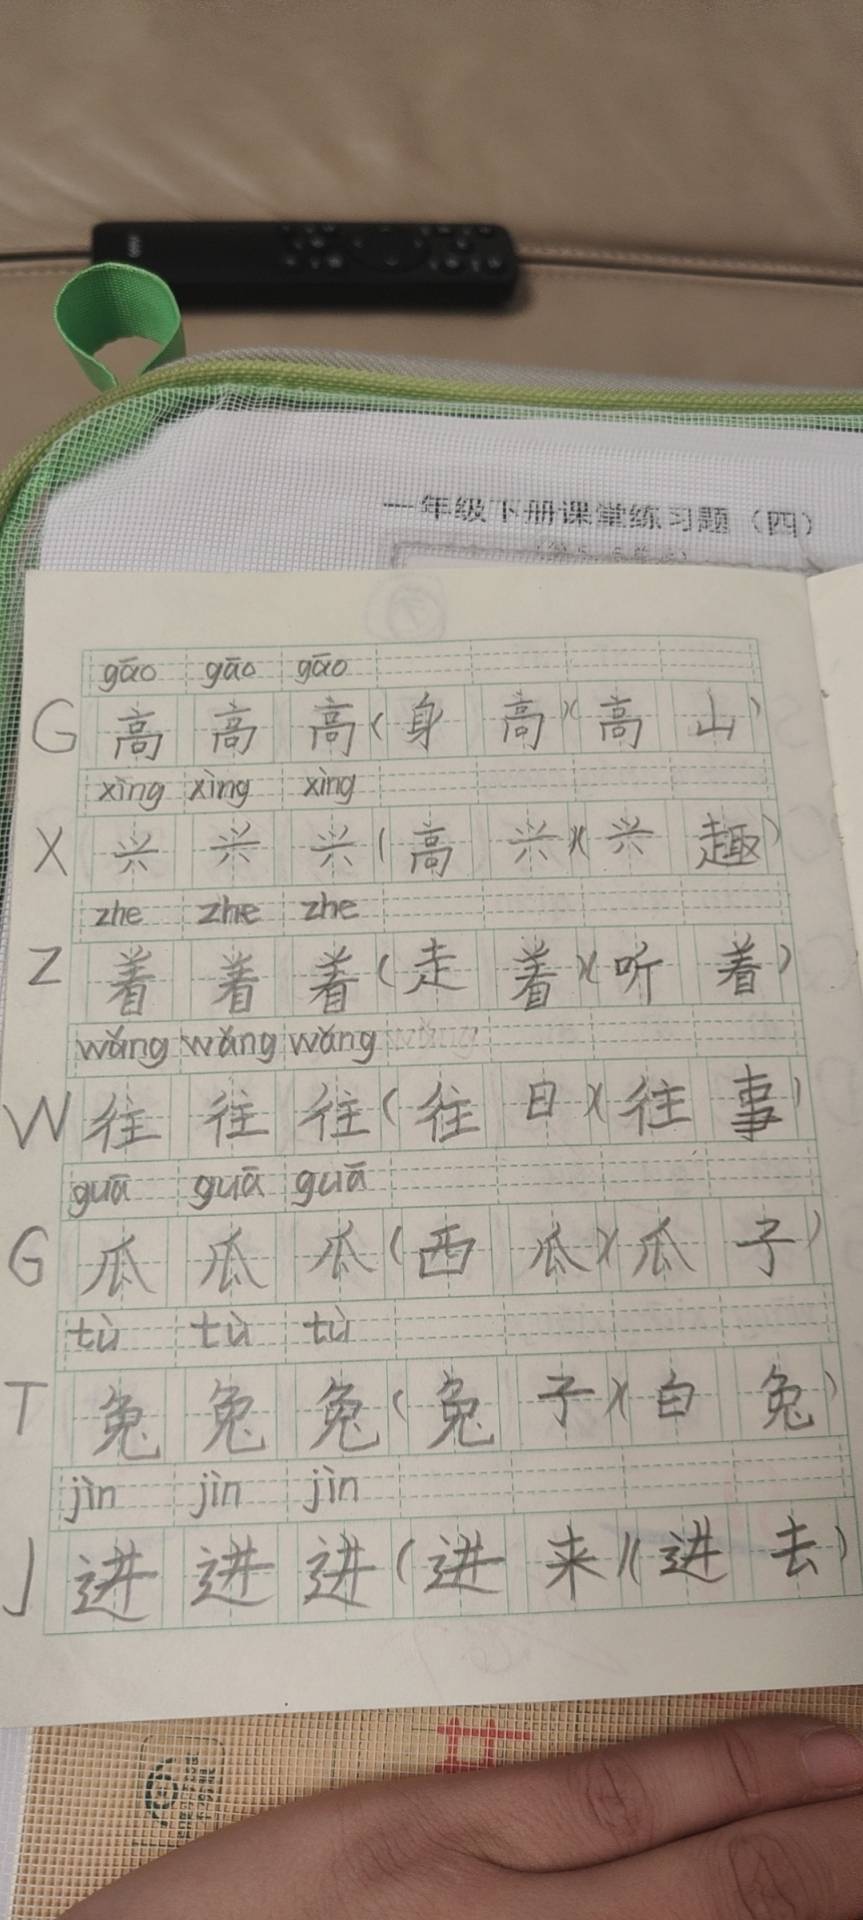 一年级下册课堂练习题（四）
gāo gāo gāo
G 高 高 高（身 高）（高 山）
xìng xìng xìng
X 兴 兴 兴（高 兴）（兴 趣）
zhe zhe zhe
Z 着 着 着（走 着）（听 着）
wǎng wǎng wǎng wǎng
W 往 往 往（往 日）（往 事）
guā guā guā
G 瓜 瓜 瓜（西 瓜）（瓜 子）
tù tù tù
T 兔 兔 兔（兔 子）（白 兔）
jìn jìn jìn
J 进 进 进（进 来）（进 去）